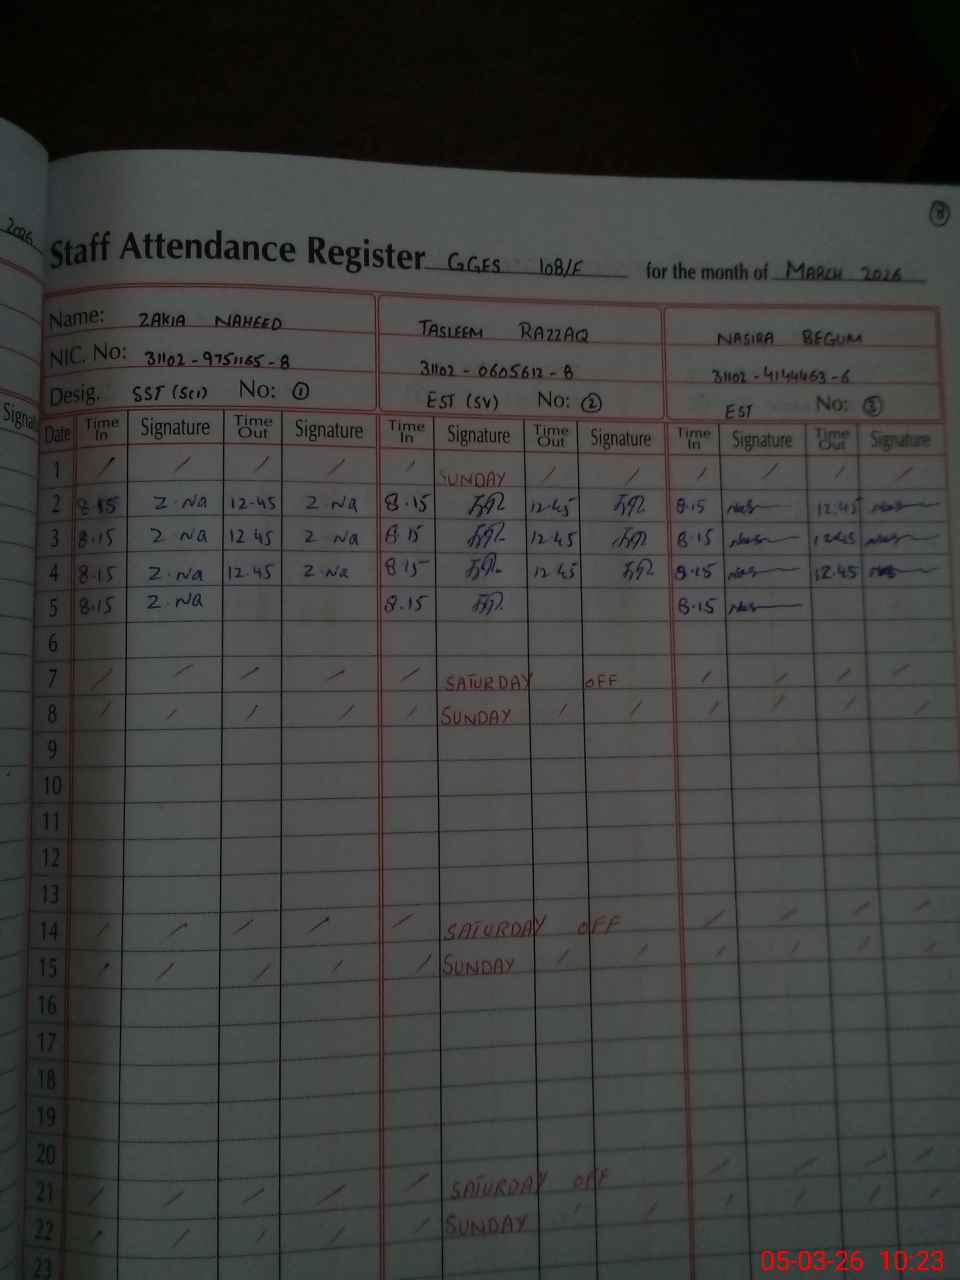 2026
8
Staff Attendance Register GGES 108/F for the month of MARCH 2026
Name: ZAKIA NAHEED TASLEEM RAZZAQ NASIRA BEGUM
NIC. No: 31102-9751165-8 31102-0605612-8 31102-4144463-6
Desig. SST (Sci) No: 1 EST (SV) No: 2 EST No: 3
Date Time In Signature Time Out Signature Time In Signature Time Out Signature Time In Signature Time Out Signature
1 SUNDAY
2 8.15 Z.Na 12.45 Z.Na 8.15 12.45 8.15 Nas 12.45 Nas
3 8.15 Z.Na 12.45 Z.Na 8.15 12.45 8.15 Nas 12.45 Nas
4 8.15 Z.Na 12.45 Z.Na 8.15 12.45 8.15 Nas 12.45 Nas
5 8.15 Z.Na 8.15 8.15 Nas
6
7 SATURDAY OFF
8 SUNDAY
9
10
11
12
13
14 SATURDAY OFF
15 SUNDAY
16
17
18
19
20
21 SATURDAY OFF
22 SUNDAY
23
05-03-26 10:23